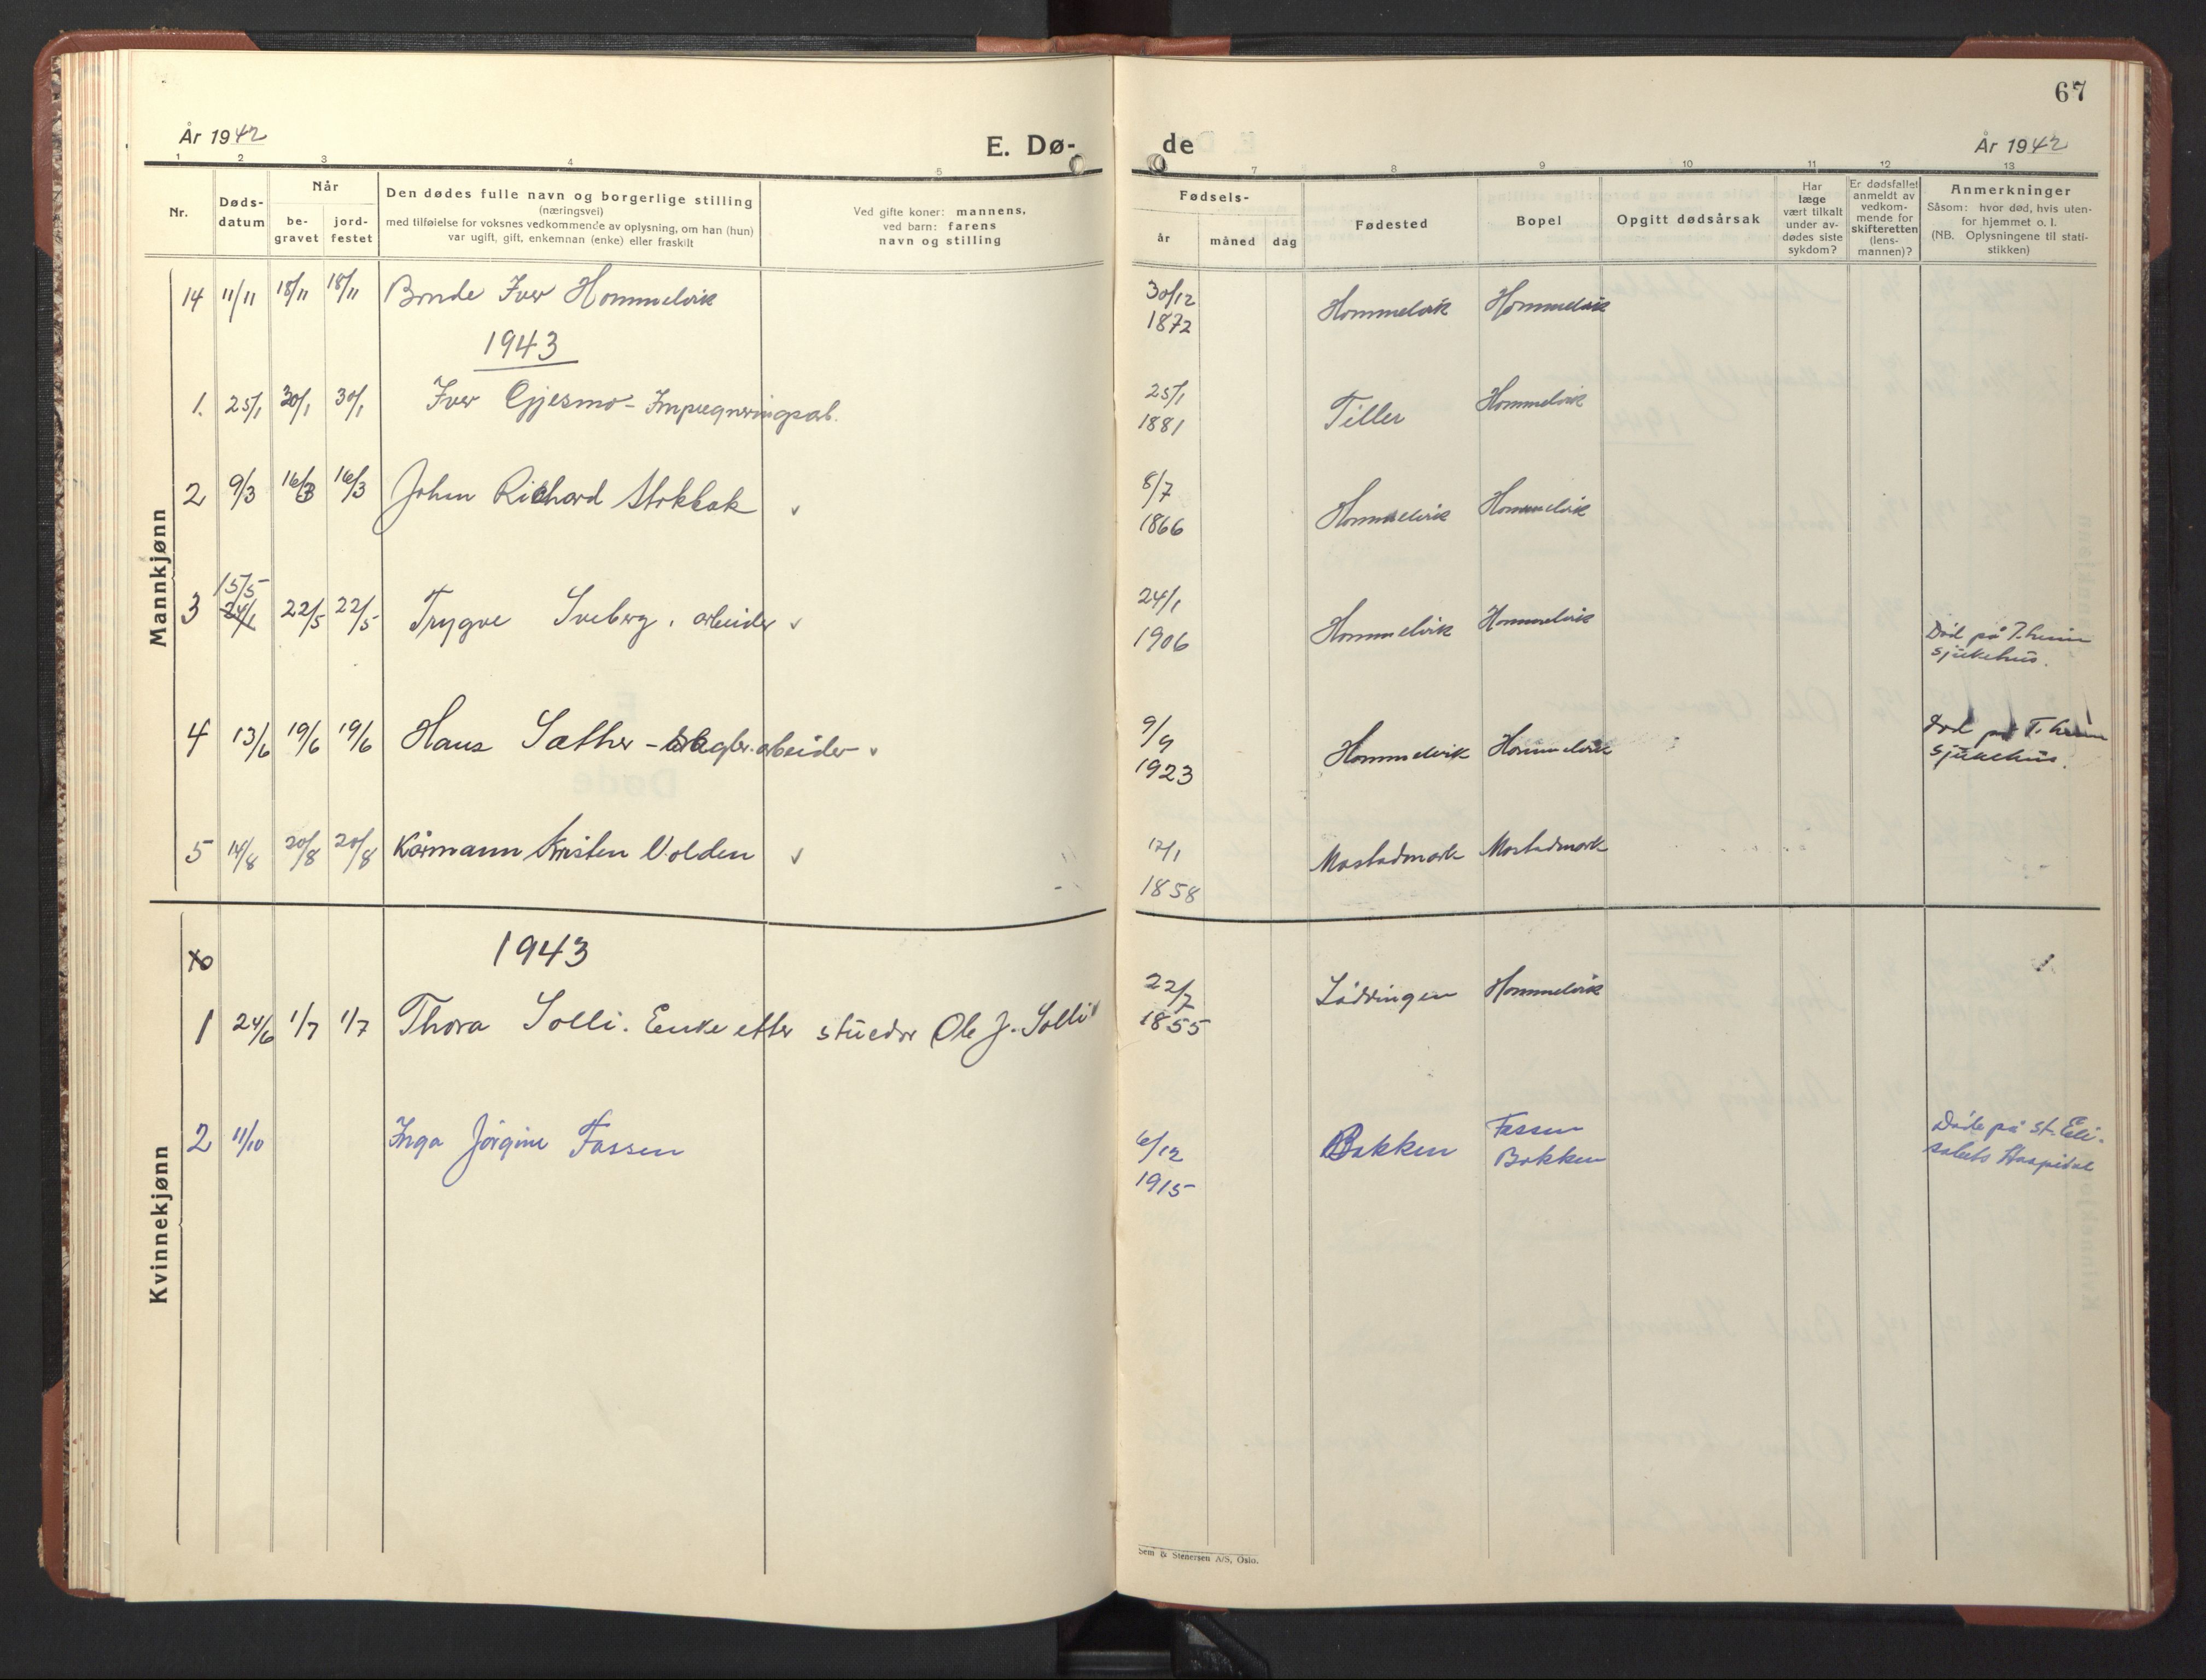 År 1942
E. Dø-
1 2 3 4 5
Nr.
Døds-
datum
Når
be-
gravet
jord-
festet
Den dødes fulle navn og borgerlige stilling
(næringsvei)
med tilføielse for voksnes vedkommende av oplysning, om han (hun)
var ugift, gift, enkemnan (enke) eller fraskilt
Ved gifte koner: mannens,
ved barn: farens
navn og stilling
Mannkjønn
14 11/11 18/11 18/11 Bonde Iver Hommelvik
1943
1. 25/1 30/1 30/1 Iver Gjesmo - Impregneringsarb.
2 9/3 16/3 16/3 John Richard Stokbak
15/5
3 24/1 22/5 22/5 Trygve Sveberg, arbeider
4 13/6 19/6 19/6 Hans Sæther - arbeider
5 14/8 20/8 20/8 Kårmann Kristen Volden
Kvinnekjønn
1943
1 24/6 1/7 1/7 Thora Solli. Enke etter stuedor Ole J. Solli
2 11/10 Inga Jörgine Fossen
67
de
År 1942
7 8 9 10 11 12 13
Fødsels-
år måned dag
Fødested
Bopel
Opgitt dødsårsak
Har
læge
vært tilkalt
under av-
dødes siste
sykdom?
Er dødsfallet
anmeldt av
vedkom-
mende for
skifteretten
(lens-
mannen)?
Anmerkninger
Såsom: hvor død, hvis uten-
for hjemmet o. l.
(NB. Oplysningene til stati-
stikken)
30/12
1872 Hommelvik Hommelvik
25/1
1881 Tiller Hommelvik
8/7
1866 Hommelvik Hommelvik
24/1
1906 Hommelvik Hommelvik
Död på T.heim
sjukehus.
9/9
1923 Hommelvik Hommelvik
Död på T.heim
sjukehus.
12/1
1858 Mostadmark Mostadmark
22/7
1855 Lödingen Hommelvik
6/12
1915 Bakken Fossen
Bakken
Döde på St. Eli-
sabets Hospital
Sem & Stenersen A/S, Oslo.